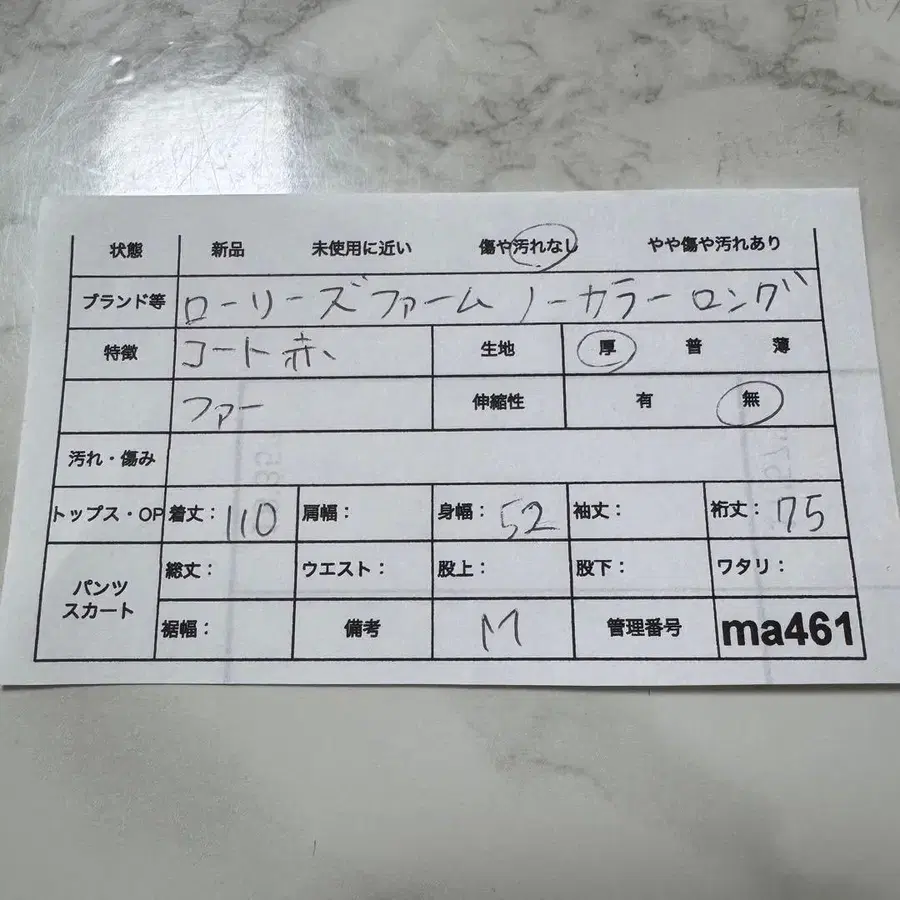 状態 新品 未使用に近い 傷や汚れなし やや傷や汚れあり
ブランド等 ローリーズファーム ノーカラーロング
特徴 コート赤、 生地 厚 普 薄
ファー 伸縮性 有 無
汚れ・傷み
トップス・OP 着丈： 110 肩幅： 身幅： 52 袖丈： 裄丈： 75
パンツ スカート 総丈： ウエスト： 股上： 股下： ワタリ：
裾幅： 備考 M 管理番号 ma461